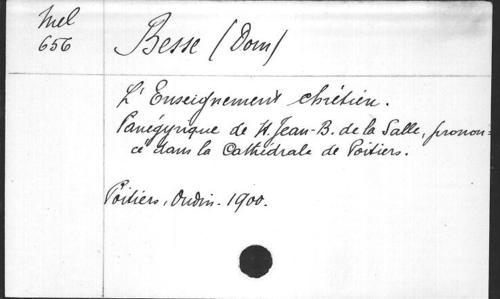 Mel
656
Besse (Dom)
L'Enseignement chrétien.
Panégyrique de St. Jean-B. de la Salle, pronon-
cé dans la Cathédrale de Poitiers.
Poitiers, Oudin. 1900.